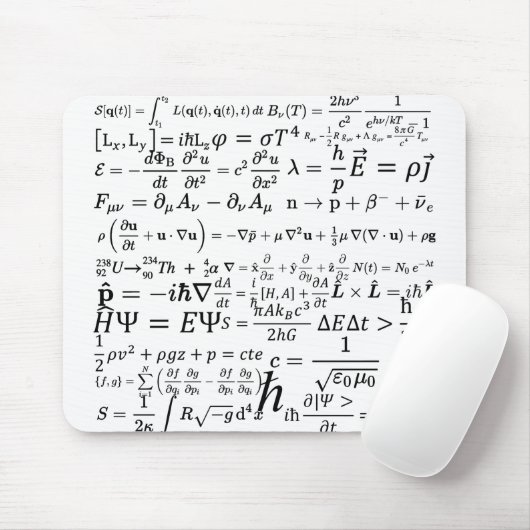 𝒮[𝐪(t)] = ∫_{t₁}^{t₂} L(𝐪(t), 𝐪̇(t), t) dt B_ν(T) = (2hν³/c²) (1/(e^{hν/kT} − 1))
[L_x, L_y] = iℏL_z φ = σT⁴ R_{μν} − (1/2)R g_{μν} + Λ g_{μν} = (8πG/c⁴) T_{μν}
ℰ = − dΦ_B/dt ∂²u/∂t² = c² ∂²u/∂x² λ = h/p E⃗ = ρj⃗
F_{μν} = ∂_μ A_ν − ∂_ν A_μ n → p + β⁻ + ν̄_e
ρ(∂𝐮/∂t + 𝐮 · ∇𝐮) = −∇p̄ + μ ∇²𝐮 + (1/3)μ ∇(∇ · 𝐮) + ρ𝐠
²³⁸₉₂U → ²³⁴₉₀Th + ⁴₂α ∇ = x̂ ∂/∂x + ŷ ∂/∂y + ẑ ∂/∂z N(t) = N₀ e^{−λt}
𝐩̂ = −iℏ∇ dA/dt = (i/ℏ)[H, A] + ∂A/∂t L̂ × L̂ = iℏL̂
ĤΨ = EΨ S = πAk_Bc³/2hG ΔEΔt > ℏ
(1/2)ρv² + ρgz + p = cte c = 1/√(ε₀ μ₀)
{f, g} = ∑_{i=1}^{N} (∂f/∂q_i ∂g/∂p_i − ∂f/∂p_i ∂g/∂q_i) ℏ
S = (1/2κ) ∫ R√−g d⁴x iℏ ∂|Ψ >/∂t =